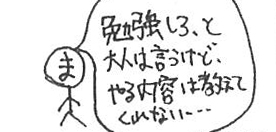 勉強しろ、と
大人は言うけど、
やる内容は教えて
くれない…
ま